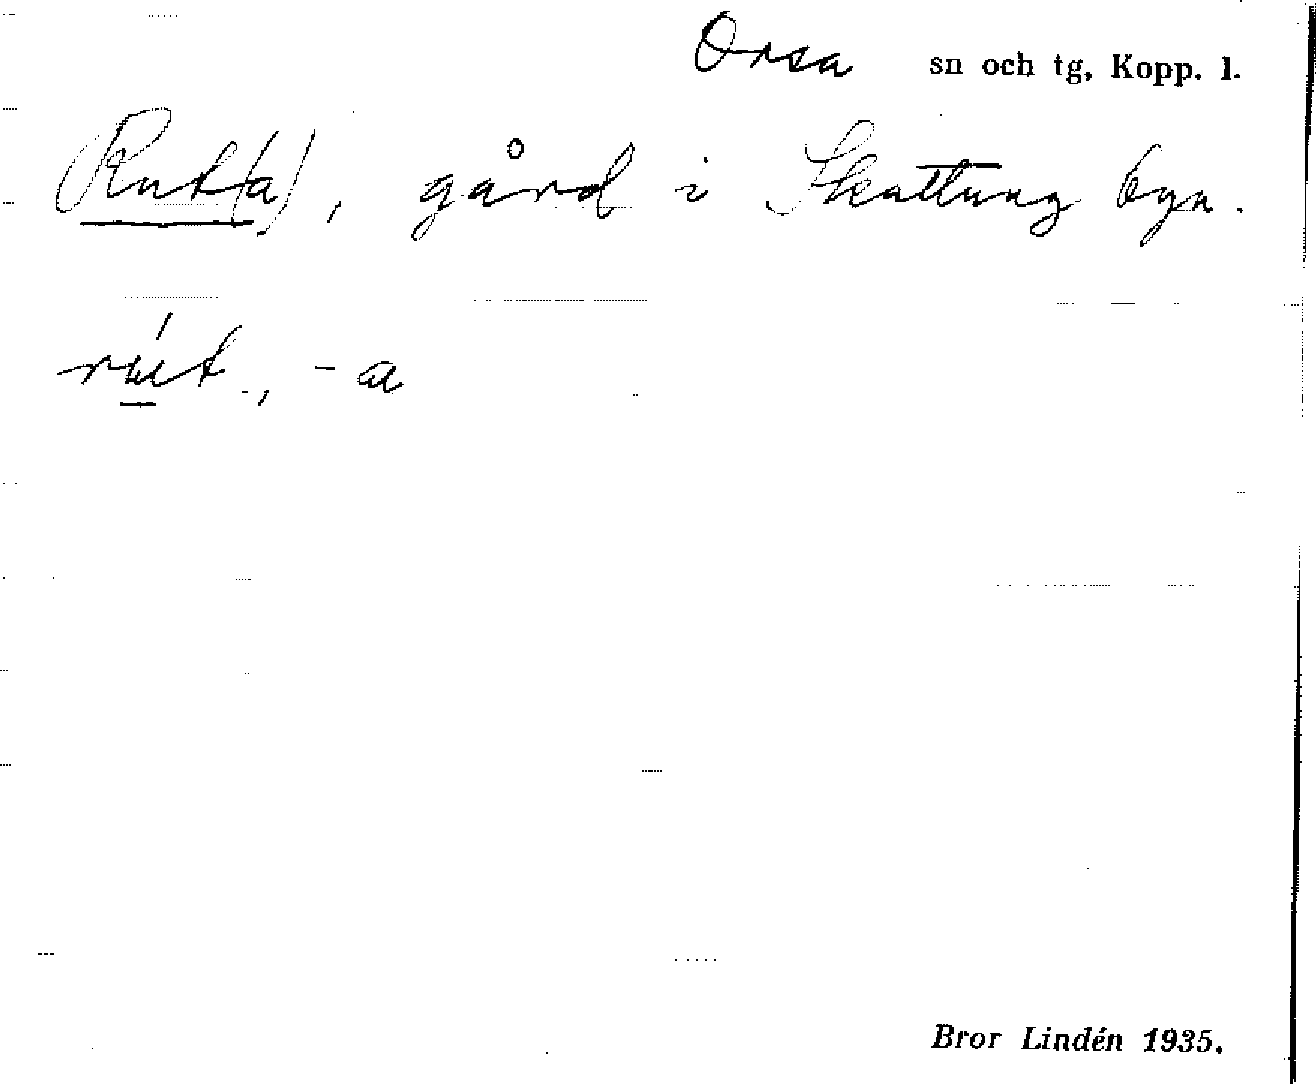 Orsa sn och tg, Kopp. l.
Rut(a), gård i Skattungbyn.
rút., -a
Bror Lindén 1935.